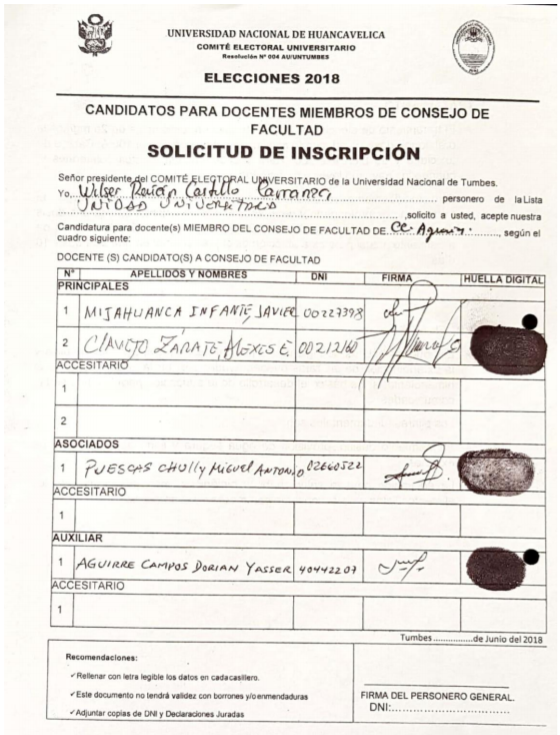 UNIVERSIDAD NACIONAL DE HUANCAVELICA
COMITÉ ELECTORAL UNIVERSITARIO
Resolución Nº 004 AU/UNTUMBES
ELECCIONES 2018
CANDIDATOS PARA DOCENTES MIEMBROS DE CONSEJO DE
FACULTAD
SOLICITUD DE INSCRIPCIÓN
Señor presidente del COMITÉ ELECTORAL UNIVERSITARIO de la Universidad Nacional de Tumbes.
Yo, Wilser Castillo personero de la Lista
UNIDAD UNIVERSITARIA ,solicito a usted, acepte nuestra
Candidatura para docente(s) MIEMBRO DEL CONSEJO DE FACULTAD DE CC. , según el
cuadro siguiente:
DOCENTE (S) CANDIDATO(S) A CONSEJO DE FACULTAD
Nº APELLIDOS Y NOMBRES DNI FIRMA HUELLA DIGITAL
PRINCIPALES
1 MIJAHUANCA INFANTE, JAVIER 00227398
2 ZÁRATE, 00212160
ACCESITARIO
1
2
ASOCIADOS
1 PUESCAS CHULLY MIGUEL ANTONIO 02660522
ACCESITARIO
1
AUXILIAR
1 AGUIRRE CAMPOS DORIAN YASSER 40442207
ACCESITARIO
1
Tumbes...............de Junio del 2018
Recomendaciones:
✓Rellenar con letra legible los datos en cada casillero.
✓Este documento no tendrá validez con borrones y/o enmendaduras
✓Adjuntar copias de DNI y Declaraciones Juradas
FIRMA DEL PERSONERO GENERAL.
DNI:........................